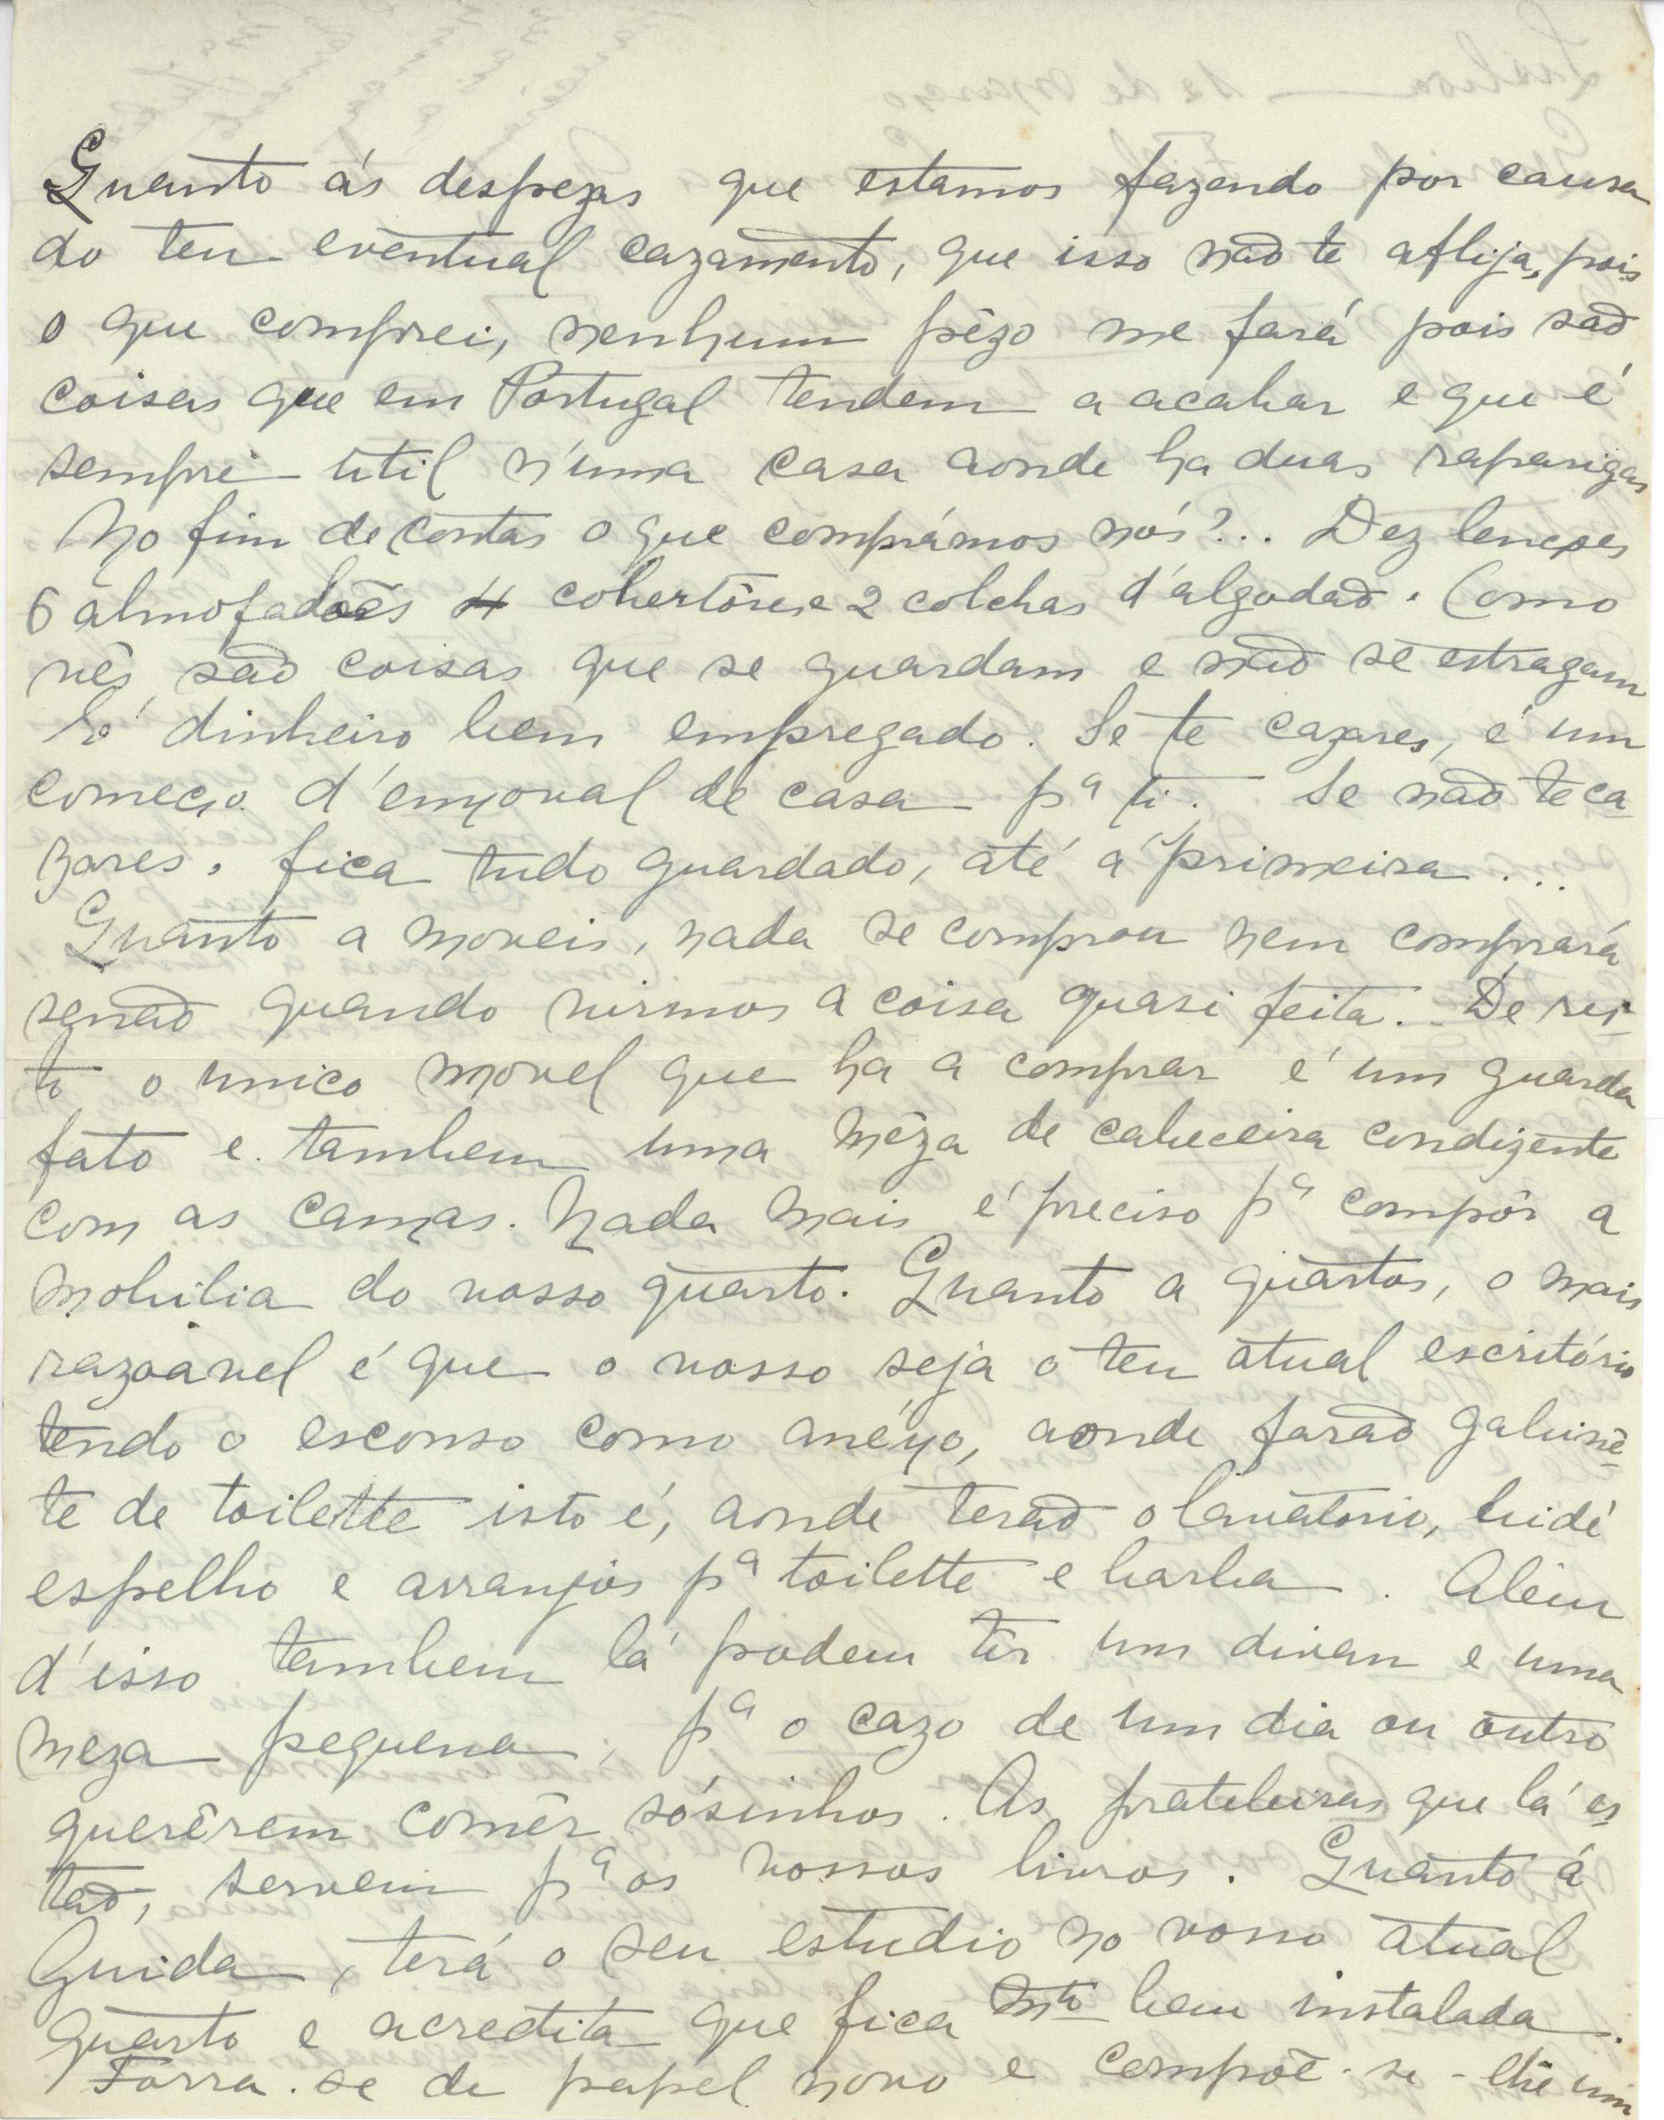 Quanto ás despezas que estamos fazendo por causa
do teu eventual cazamento, que isso não te aflija, pois
o que comprei, nenhum pêzo me fará pois são
coisas que em Portugal tendem a acabar e que é
sempre util n'uma casa aonde ha duas raparigas
No fim de contas o que comprámos nós?... Dez lençoes
6 almofadões 4 cobertôres e 2 colchas d'algodão. Como
vês são coisas que se guardam e não se estragam
É dinheiro bem empregado. Se te cazares, é um
começo d'enxoval de casa pª ti. Se não te ca-
zares, fica tudo guardado, até á primeira...
Quanto a moveis, nada se comprou nem comprará
senão quando virmos a coisa quasi feita. De res-
to o unico movel que ha a comprar é um guarda
fato e tambem uma mêza de cabeceira condizente
com as camas. Nada mais é preciso pª compôr a
mobilia do vosso quarto. Quanto a quartos, o mais
razoavel é que o vosso seja o teu atual escritório
tendo o esconso como anéxo, aonde farão gabinê-
te de toilette isto é, aonde terão o lavatorio, bidé
espelho e arranjos pª toilette e barba. Alem
d'isso tambem lá podem têr um divan e uma
meza pequena, pª o cazo de um dia ou outro
querêrem comêr sósinhos. As prateleiras que lá es-
tão, servem pª os vossos livros. Quanto á
Guida, terá o seu estudio no vosso atual
quarto e acredita que fica mto bem instalada.
Forra-se de papel novo e compõe-se-lhe um